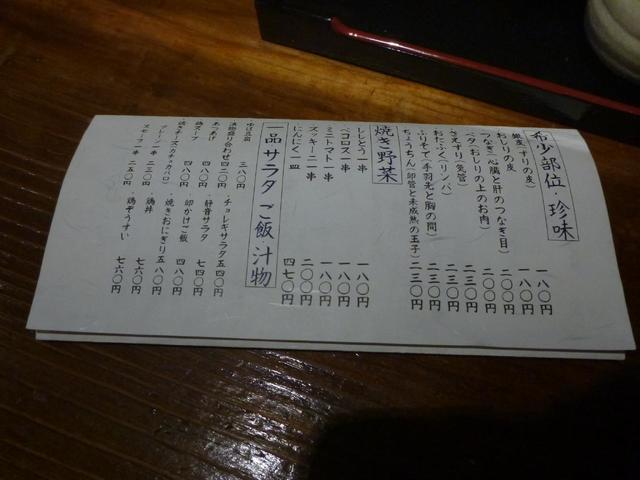 希少部位・珍味
(すりの皮) 一八〇円
おしりの皮 一八〇円
つなぎ(心臓と肝のつなぎ目) 二〇〇円
ペタ(おしりの上のお肉) 二〇〇円
さえずり(気管) 二三〇円
おたふく(リンパ) 二三〇円
ふりそで(手羽先と胸の間) 二三〇円
ちょうちん(卵管と未成熟の玉子) 二三〇円
焼き野菜
ししとう一串 一八〇円
ペコロス一串 一八〇円
ミニトマト一串 一八〇円
ズッキーニ一串 二〇〇円
にんにく一皿 四七〇円
一品 サラダ ご飯 汁物
三八〇円
漬物盛り合わせ 四二〇円・チョレギサラダ 五四〇円
あつあげ 四八〇円・サラダ 七四〇円
鶏スープ 四八〇円・卵かけご飯 四八〇円
チーズ(カチョカバロ)・焼きおにぎり 五八〇円
プレーン一串 二三〇円・鶏丼 七六〇円
スモーク一串 二五〇円・鶏ぞうすい 七六〇円